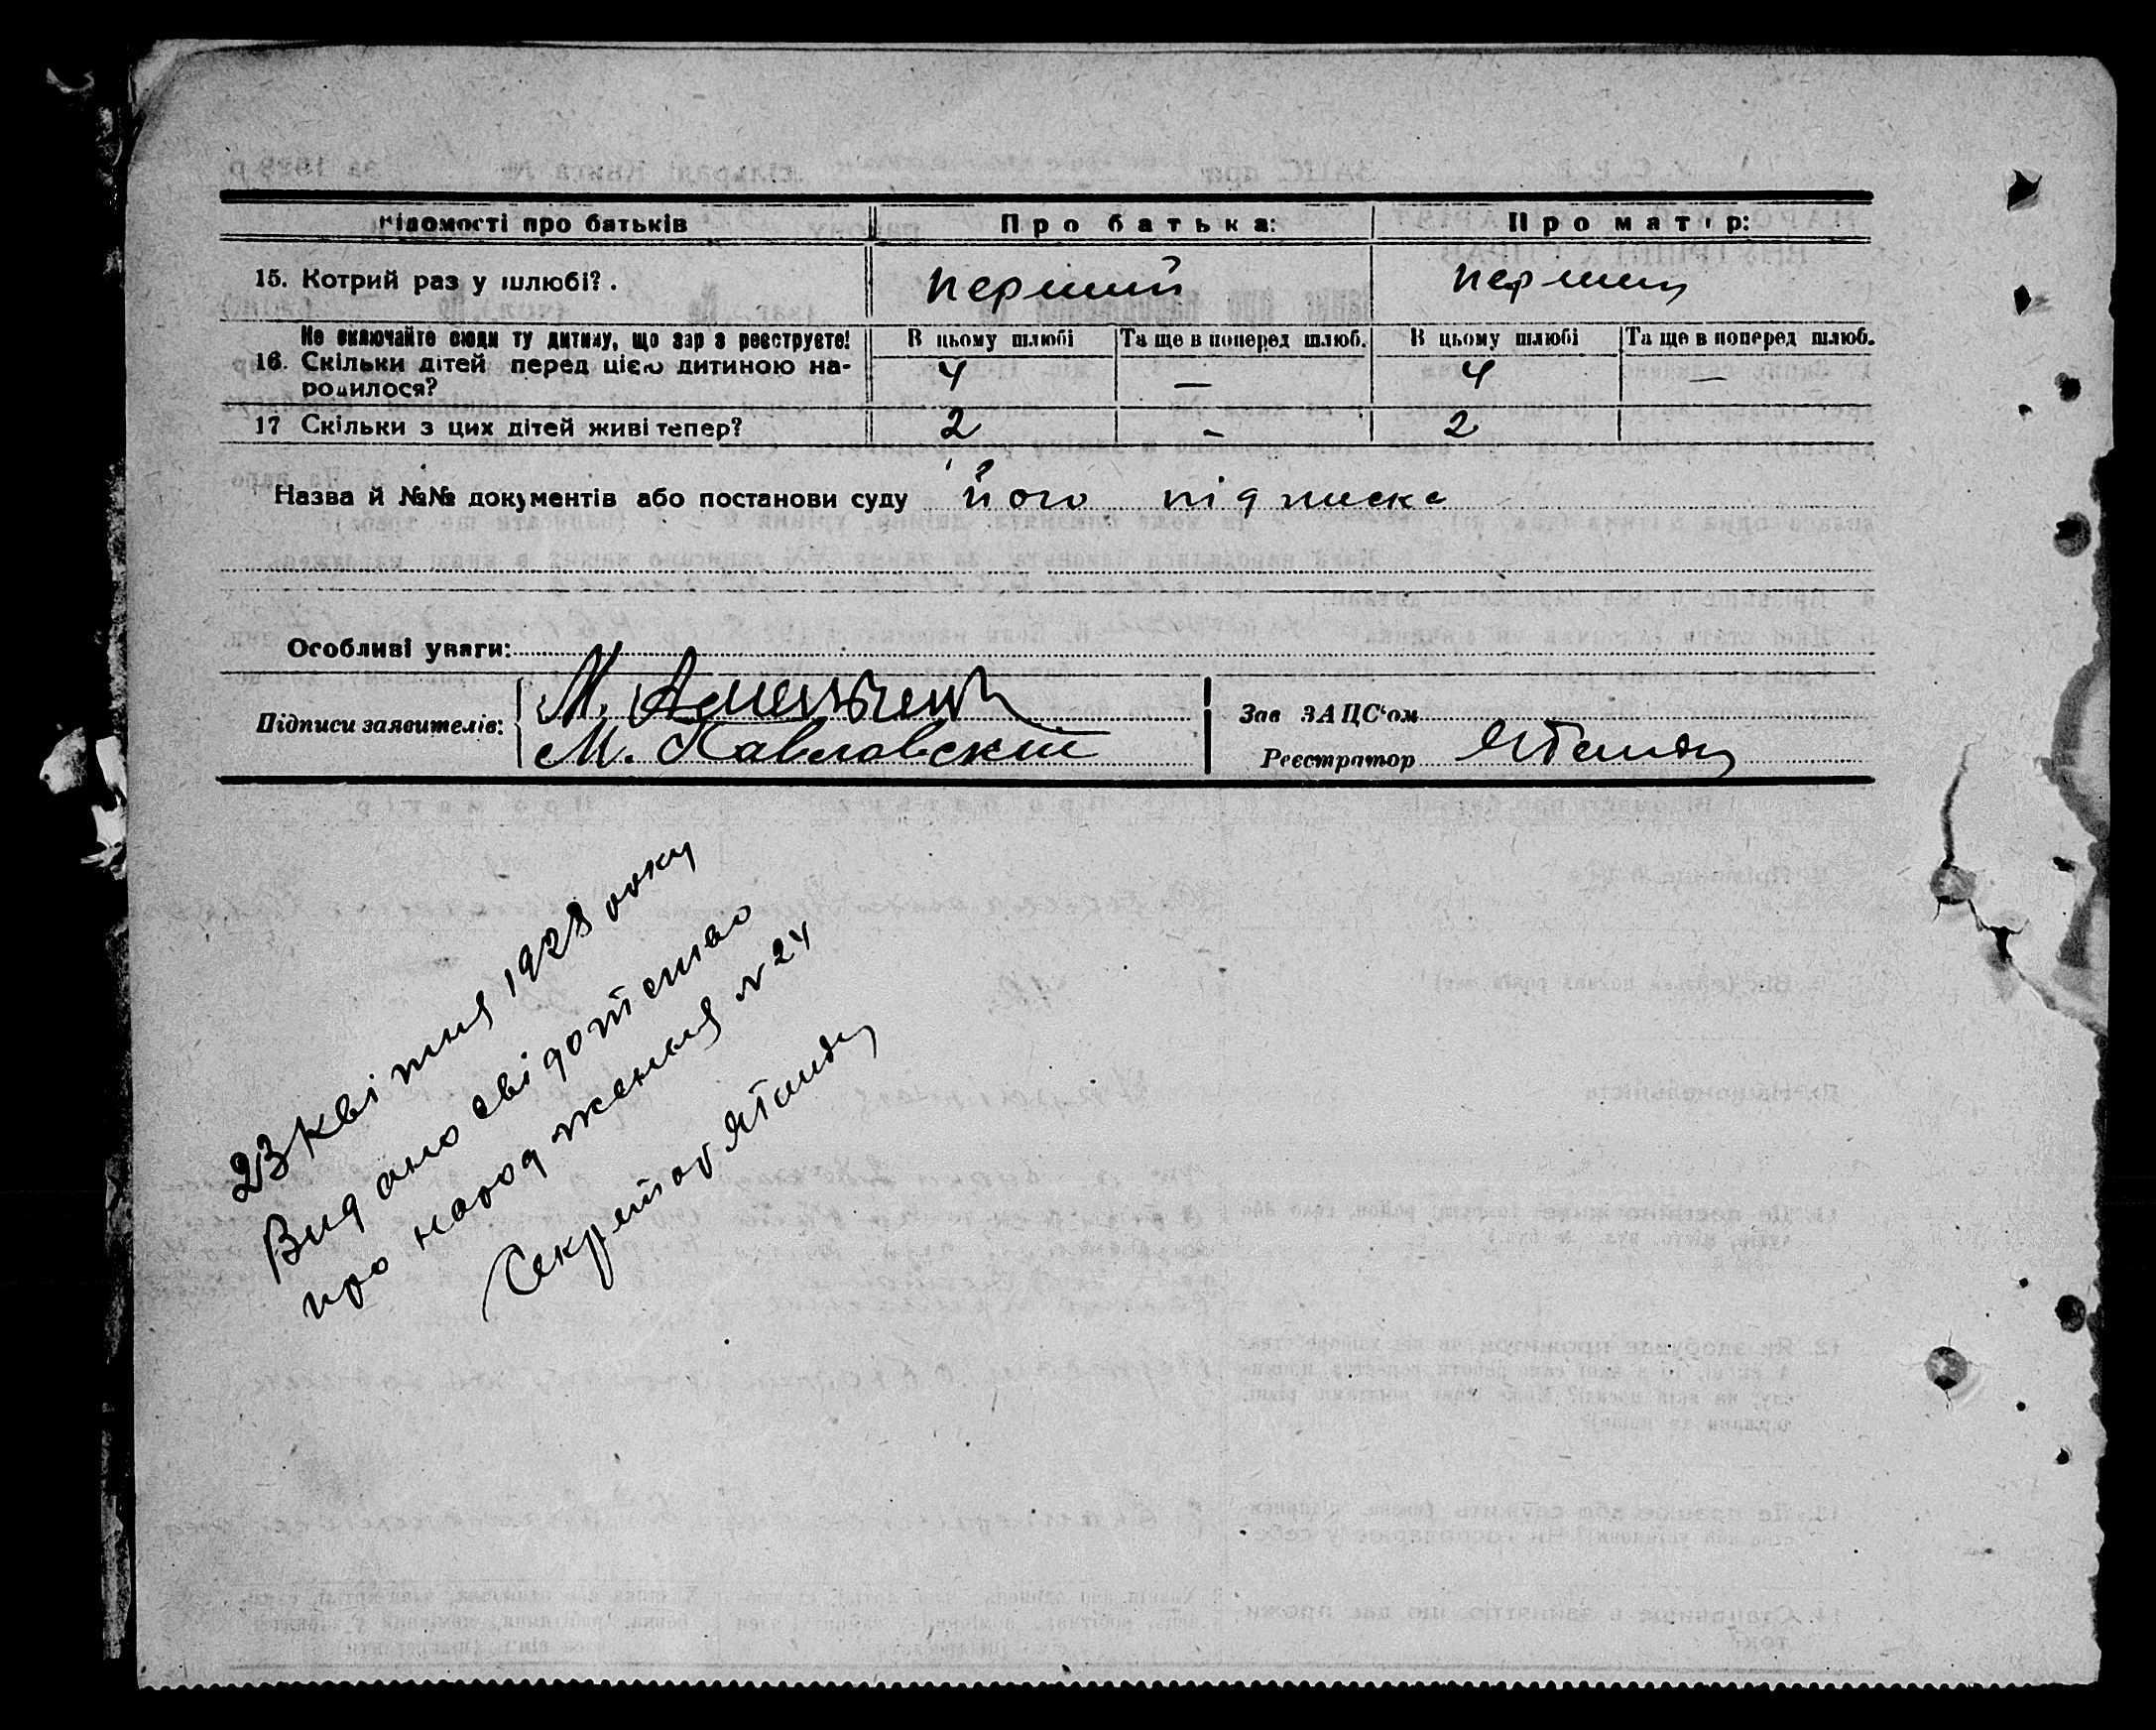 Відомості про батьків Про батька: Про матір:
15. Котрий раз у шлюбі? . перший перший
Не включайте сюди ту дитину, що зараз реєструєте! В цьому шлюбі Та ще в поперед шлюб. В цьому шлюбі Та ще в поперед шлюб.
16. Скільки дітей перед цією дитиною на-
родилося? 4 — 4 —
17 Скільки з цих дітей живі тепер? 2 - 2
Назва й №№ документів або постанови суду його підписка
Особливі уваги:
Підписи заявителів: М.
М. Павловский
Зав ЗАЦС'ом
Реєстратор
23 квітня 1928 року
Видано свідотство
про народження № 24
Секретар